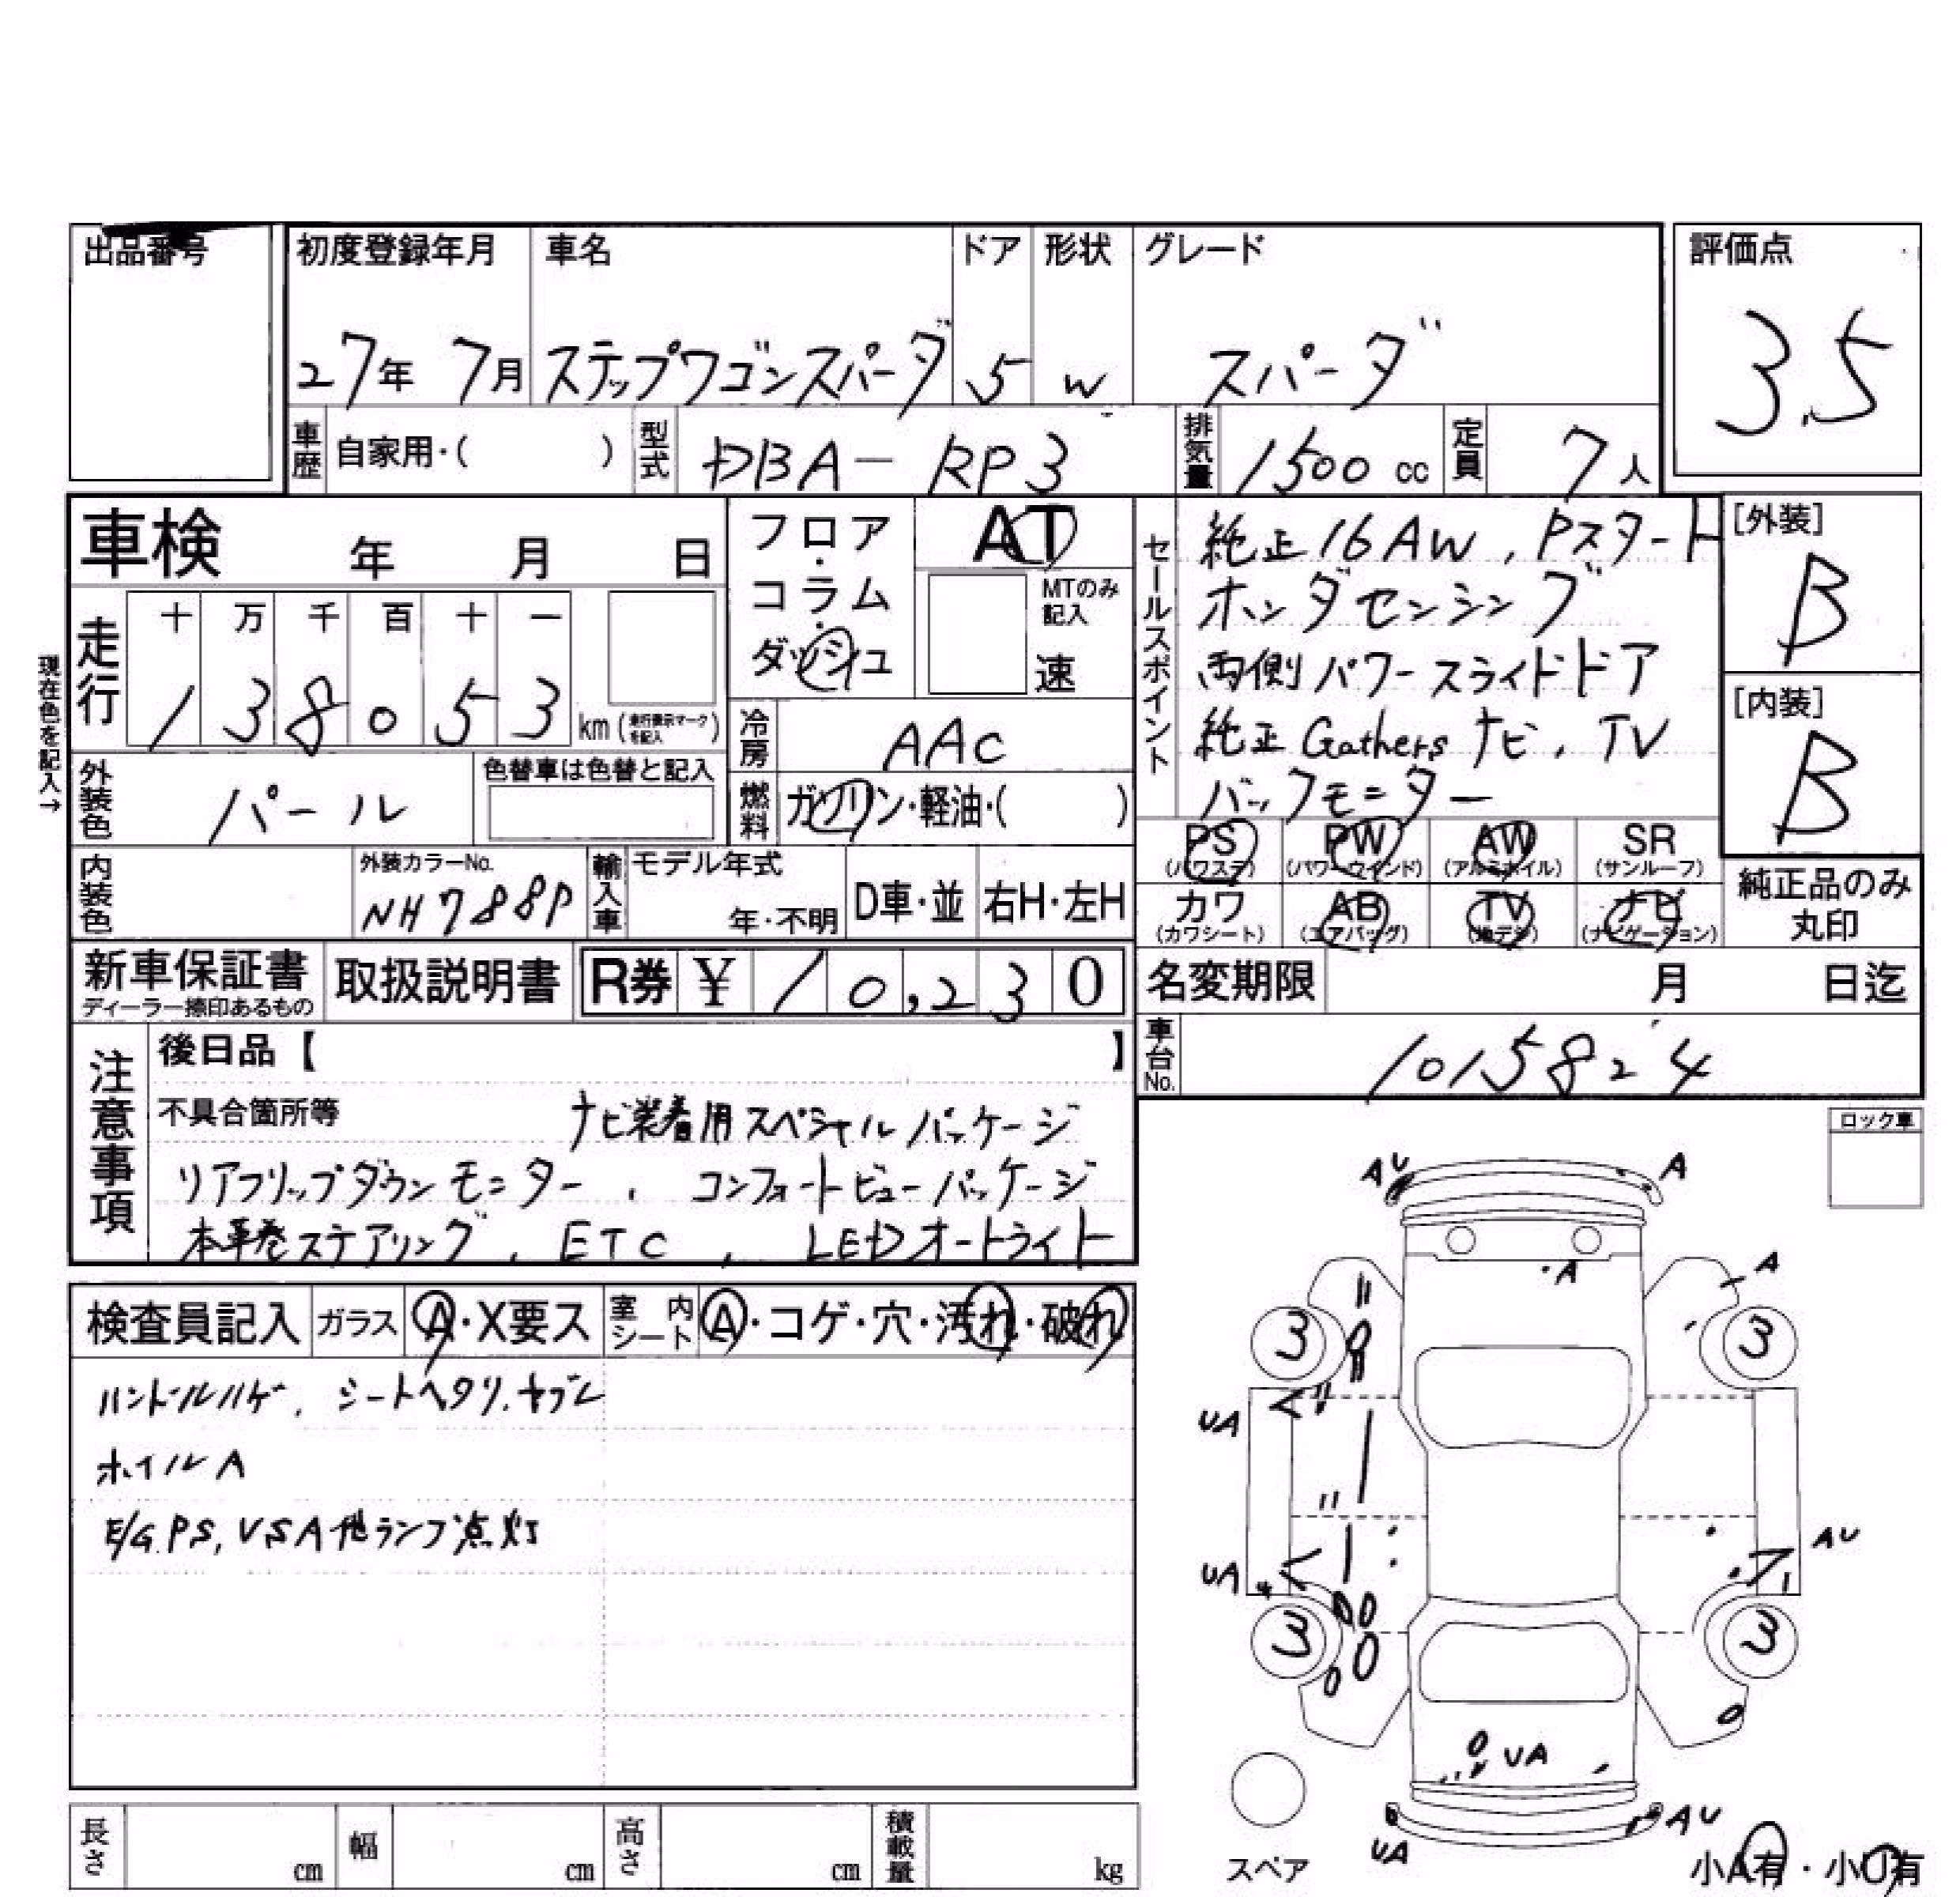 出品番号
初度登録年月 車名 ドア 形状 グレード 評価点
27年 7月 ステップワゴンスパーダ 5 W スパーダ 3.5
車歴 自家用・( ) 型式 DBA-RP3 排気量 1500cc 定員 7人
車検 年 月 日
フロア・コラム・ダッシュ
AT
MTのみ記入
速
セールスポイント
純正16AW, Pスタート
ホンダセンシング
両側パワースライドドア
純正Gathersナビ, TV
バックモニター
[外装] B
[内装] B
現在色を記入→
走行 十 万 千 百 十 一
138053 km (走行表示マークを記入)
冷房 AAC
外装色 パール 色替車は色替と記入
燃料 ガソリン・軽油・( )
PS (パワステ) PW (パワーウインド) AW (アルミホイル) SR (サンルーフ)
カワ (カワシート) AB (エアバッグ) TV (地デジ) ナビ (ナビゲーション)
純正品のみ丸印
内装色 外装カラーNo. NH788P 輸入車 モデル年式 年・不明 D車・並 右H・左H
新車保証書 ディーラー捺印あるもの 取扱説明書 R券 ¥10,230
名変期限 月 日迄
車台No. 1015824
注意事項
後日品【 】
不具合箇所等 ナビ装着用スペシャルパッケージ
リアフリップダウンモニター, コンフォートビューパッケージ
本革巻ステアリング, ETC, LEDオートライト
ロック車
検査員記入 ガラス A・X要ス 室内シート A・コゲ・穴・汚れ・破れ
ハンドルハゲ, シートヘタリ, ヤブレ
ホイルA
E/G, PS, VSA他ランプ点灯
AU A
A
A
3 3
UA
AU
UA
3 3
UA
AU
UA
スペア
小A有・小U有
長さ cm 幅 cm 高さ cm 積載量 kg